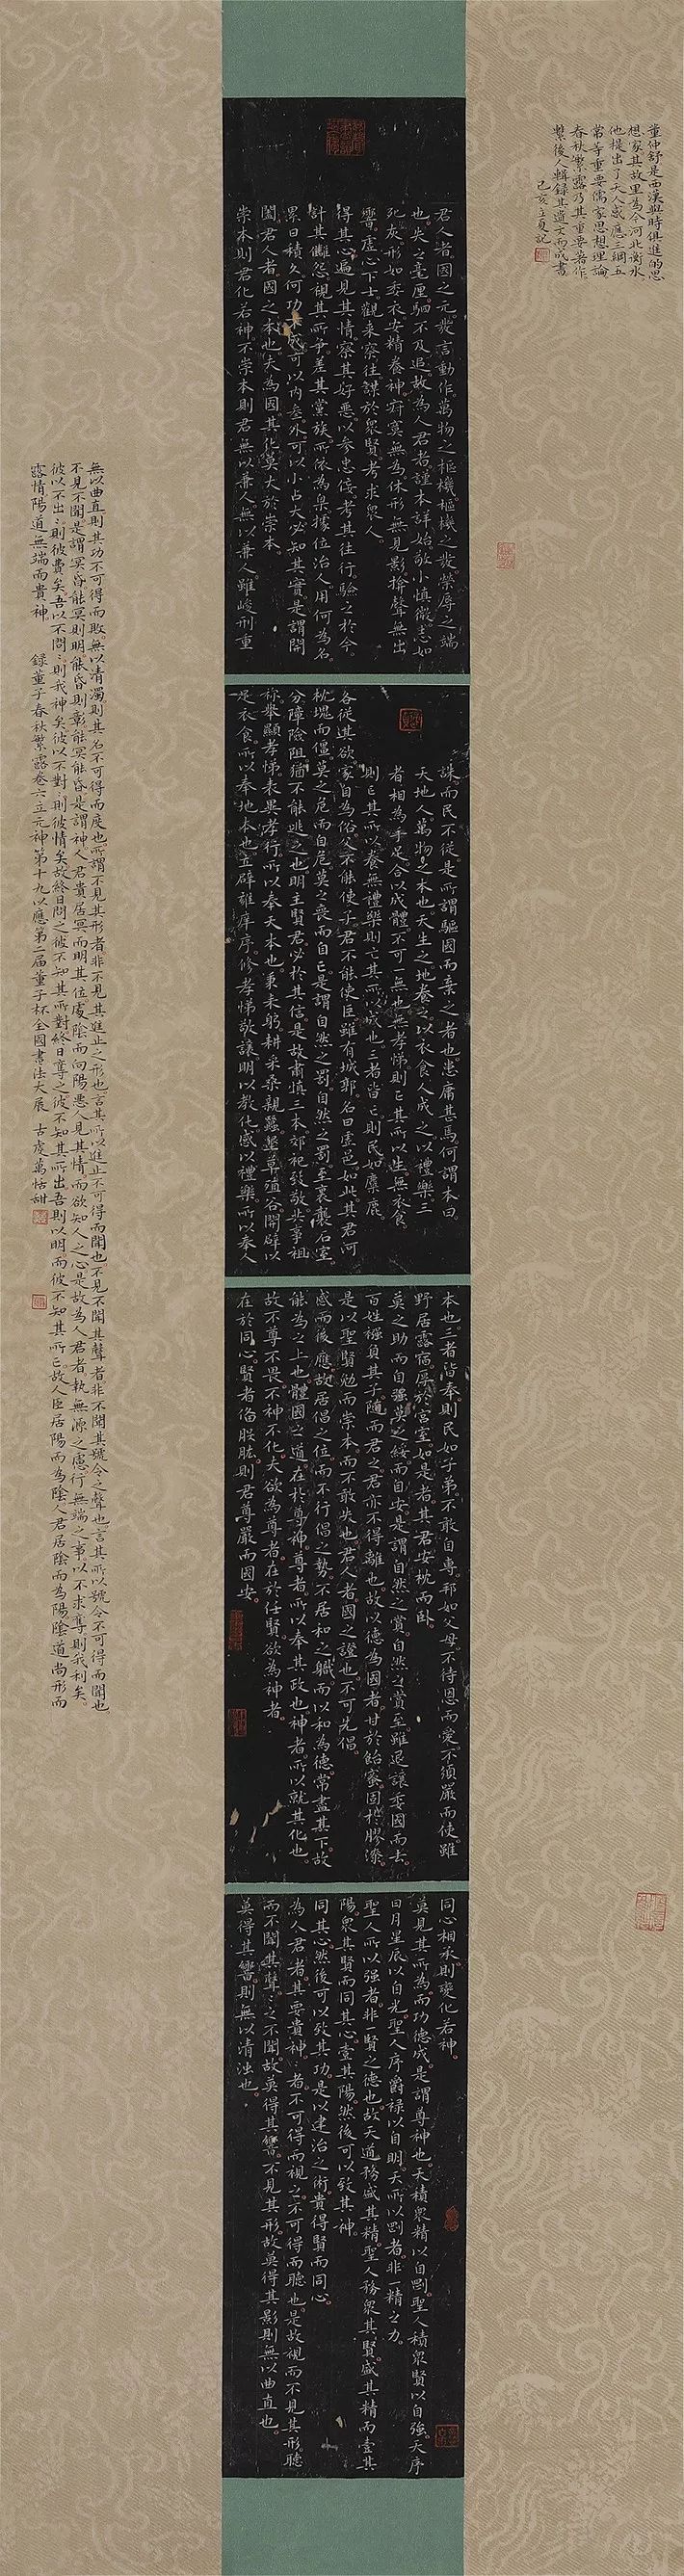 董仲舒是西漢與時俱進的思
想家其故里為今河北衡水
他提出了天人感應三綱五
常等重要儒家思想理論
春秋繁露乃其重要著作
繫後人輯錄其遺文而成書
己亥立夏記
君人者國之元發言動作萬物之樞機樞機之發榮辱之端
也失之毫厘駟不及追故為人君者謹本詳始敬小慎微志如
死灰形如委衣安精養神寂寞無為休形無見影揜聲無出
響虛心下士觀來察往謀於衆賢考求衆人
得其心遍見其情察其好惡以參忠佞考其往行驗之於今
計其讎怨視其所爭差其黨族所依為臬據位治人用何為名
累日積久何功不成可以內參外可以小占大必知其實是謂開
闔君人者國之本也夫為國其化莫大於崇本
崇本則君化若神不崇本則君無以兼人無以兼人雖峻刑重
誅而民不從是所謂驅國而棄之者也患庸甚焉何謂本曰
天地人萬物之本也天生之地養之以衣食人成之以禮樂三
者相為手足合以成體不可一無也無孝悌則亡其所以生無衣食
則亡其所以養無禮樂則亡其所以成也三者皆亡則民如麋鹿
各從其欲家自為俗父不能使子君不能使臣雖有城郭名曰虛邑如此其君何
枕塊而僵莫之危而自危莫之喪而自亡是謂自然之罰自然之罰至裹襲石室
分障險阻猶不能逃之也明主賢君必於其信是故肅慎三本郊祀致敬共事祖
祢舉顯孝悌表異孝行所以奉天本也秉耒躬耕采桑親蠶墾草殖谷開辟以
足衣食所以奉地本也立辟雍庠序修孝悌敬讓明以教化感以禮樂所以奉人
本也三者皆奉則民如子弟不敢自專邦如父母不待恩而愛不須嚴而使雖
野居露宿厚於宮室如是者其君安枕而臥
莫之助而自強莫之綏而自安是謂自然之賞自然之賞至雖退讓委國而去
百姓襁負其子隨而君之君亦不得離也故以德為國者甘於飴蜜固於膠漆
是以聖賢勉而崇本而不敢失也君人者國之證也不可先倡
感而後應故居倡之位而不行倡之勢不居和之職而以和為德常盡其下故
能為之上也體國之道在於尊神尊者所以奉其政也神者所以就其化也
故不尊不畏不神不化夫欲為尊者在於任賢欲為神者
在於同心賢者備股肱則君尊嚴而國安
同心相承則變化若神
莫見其所為而功德成是謂尊神也天積衆精以自剛聖人積衆賢以自強天序
日月星辰以自光聖人序爵祿以自明天所以剛者非一精之力
聖人所以強者非一賢之德也故天道務盛其精聖人務衆其賢盛其精而壹其
陽衆其賢而同其心壹其陽然後可以致其神
同其心然後可以致其功是以建治之術貴得賢而同心
為人君者其要貴神神者不可得而視之不可得而聽也是故視而不見其形聽
而不聞其聲聲之不聞故莫得其響不見其形故莫得其影則無以曲直也
莫得其響則無以清濁也
無以曲直則其功不可得而敗無以清濁則其名不可得而度也所謂不見其形者非不見其進止之形也言其所以進止不可得而聞也不見不聞其聲者非不聞其號令之聲也言其所以號令不可得而聞也
不見不聞是謂冥昏能冥則明能昏則彰能冥能昏是謂神人君貴居冥而明其位處陰而向陽惡人見其情而欲知人之心是故為人君者執無源之慮行無端之事以不求奪則我利矣
彼以不出:則彼費矣吾以不問:則我神矣彼以不對:則彼情矣故終日問之彼不知其所對終日奪之彼不知其所出吾則以明而彼不知其所亡故人臣居陽而為陰人君居陰而為陽陰道尚形而
露情陽道無端而貴神 錄董子春秋繁露卷六立元神第十九以應第二屆董子杯全國書法大展 古虔萬恬甜